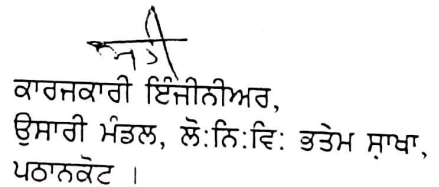 ਕਾਰਜਕਾਰੀ ਇੰਜੀਨੀਅਰ,
ਉਸਾਰੀ ਮੰਡਲ, ਲੋ:ਨਿ:ਵਿ: ਭਤੇਮ ਸ਼ਾਖਾ,
ਪਠਾਨਕੋਟ ।